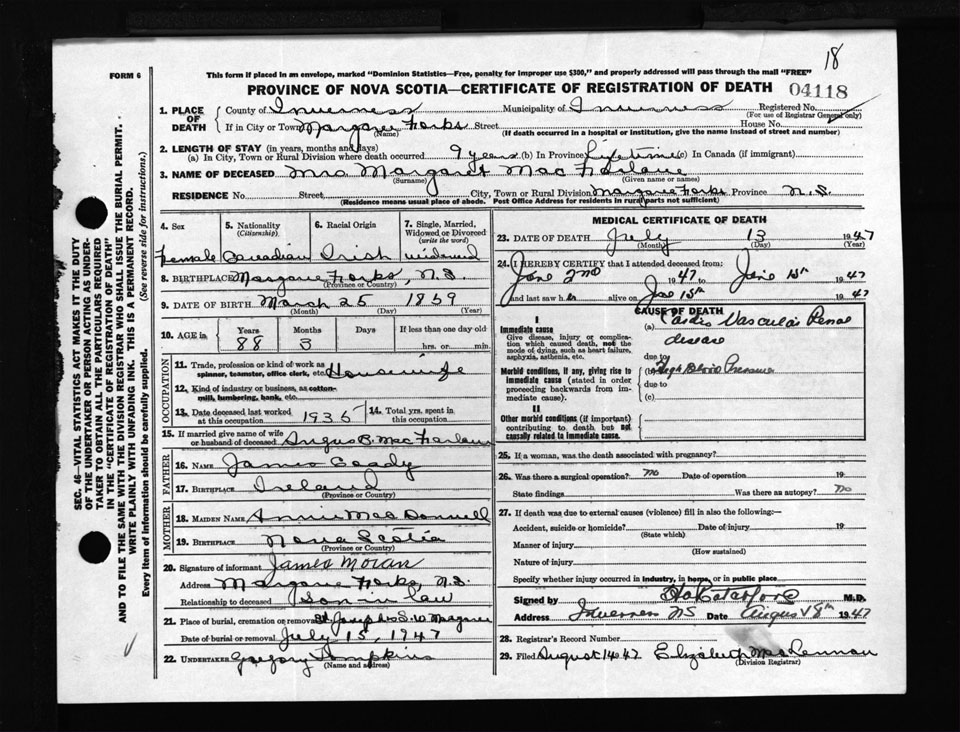 18
FORM 6
This form if placed in an envelope, marked "Dominion Statistics—Free, penalty for improper use $300," and properly addressed will pass through the mail "FREE"
PROVINCE OF NOVA SCOTIA—CERTIFICATE OF REGISTRATION OF DEATH 04118
SEC. 46—VITAL STATISTICS ACT MAKES IT THE DUTY
OF THE UNDERTAKER OR PERSON ACTING AS UNDER-
TAKER TO OBTAIN ALL THE PARTICULARS REQUIRED
IN THE "CERTIFICATE OF REGISTRATION OF DEATH"
AND TO FILE THE SAME WITH THE DIVISION REGISTRAR WHO SHALL ISSUE THE BURIAL PERMIT.
WRITE PLAINLY WITH UNFADING INK. THIS IS A PERMANENT RECORD.
Every item of Information should be carefully supplied. (See reverse side for instructions.)
1. PLACE OF DEATH
County of Inverness Municipality of Inverness Registered No.
(For use of Registrar General only)
If in City or Town Margaree Forks Street House No.
(Name) (If death occurred in a hospital or institution, give the name instead of street and number)
2. LENGTH OF STAY (in years, months and days)
(a) In City, Town or Rural Division where death occurred 9 years (b) In Province Lifetime (c) In Canada (if immigrant)
3. NAME OF DECEASED Mrs Margaret Mac Farlane
(Surname) (Given name or names)
RESIDENCE No. Street City, Town or Rural Division Margaree Forks Province N.S.
(Residence means usual place of abode. Post Office Address for residents in rural parts not sufficient)
4. Sex 5. Nationality (Citizenship) 6. Racial Origin 7. Single, Married, Widowed or Divorced (write the word)
Female Canadian Irish widowed
8. BIRTHPLACE Margaree Forks, N.S.
(Province or Country)
9. DATE OF BIRTH March 25 1859
(Month) (Day) (Year)
10. AGE in Years Months Days If less than one day old
88 3 hrs. or min.
OCCUPATION
11. Trade, profession or kind of work as spinner, teamster, office clerk, etc. Housewife
12. Kind of industry or business, as cotton-mill, lumbering, bank, etc.
13. Date deceased last worked at this occupation 1935 14. Total yrs. spent in this occupation
15. If married give name of wife or husband of deceased Angus B. Mac Farlane
FATHER
16. NAME James Coady
17. BIRTHPLACE Ireland
(Province or Country)
MOTHER
18. MAIDEN NAME Annie MacDonnell
19. BIRTHPLACE Nova Scotia
(Province or Country)
20. Signature of informant James Moran
Address Margaree Forks, N.S.
Relationship to deceased Son in law
21. Place of burial, cremation or removal St Josephs S.W Margaree
Date of burial or removal July 15, 1947
22. UNDERTAKER Gregory Tompkins
(Name and address)
MEDICAL CERTIFICATE OF DEATH
23. DATE OF DEATH July 13 1947
(Month) (Day) (Year)
24. I HEREBY CERTIFY that I attended deceased from
June 2nd 1947, to June 15th 1947
and last saw her alive on June 15th 1947
CAUSE OF DEATH
I
Immediate cause (a) Cardio Vascular Renal disease
Give disease, injury or complication which caused death, not the mode of dying, such as heart failure, asphyxia, asthenia, etc.
due to
Morbid conditions, if any, giving rise to immediate cause (stated in order proceeding backwards from immediate cause).
(b) High Blood Pressure
due to
(c)
II
Other morbid conditions (if important) contributing to death but not causally related to immediate cause.
25. If a woman, was the death associated with pregnancy?
26. Was there a surgical operation? no Date of operation 19
State findings Was there an autopsy? no
27. If death was due to external causes (violence) fill in also the following:—
Accident, suicide or homicide? Date of injury 19
(State which)
Manner of injury
(How sustained)
Nature of injury
Specify whether injury occurred in industry, in home, or in public place
Signed by M.D.
Address Inverness NS Date August 8th 1947
28. Registrar's Record Number
29. Filed August 14 47 Elizabeth MacLennan
(Division Registrar)